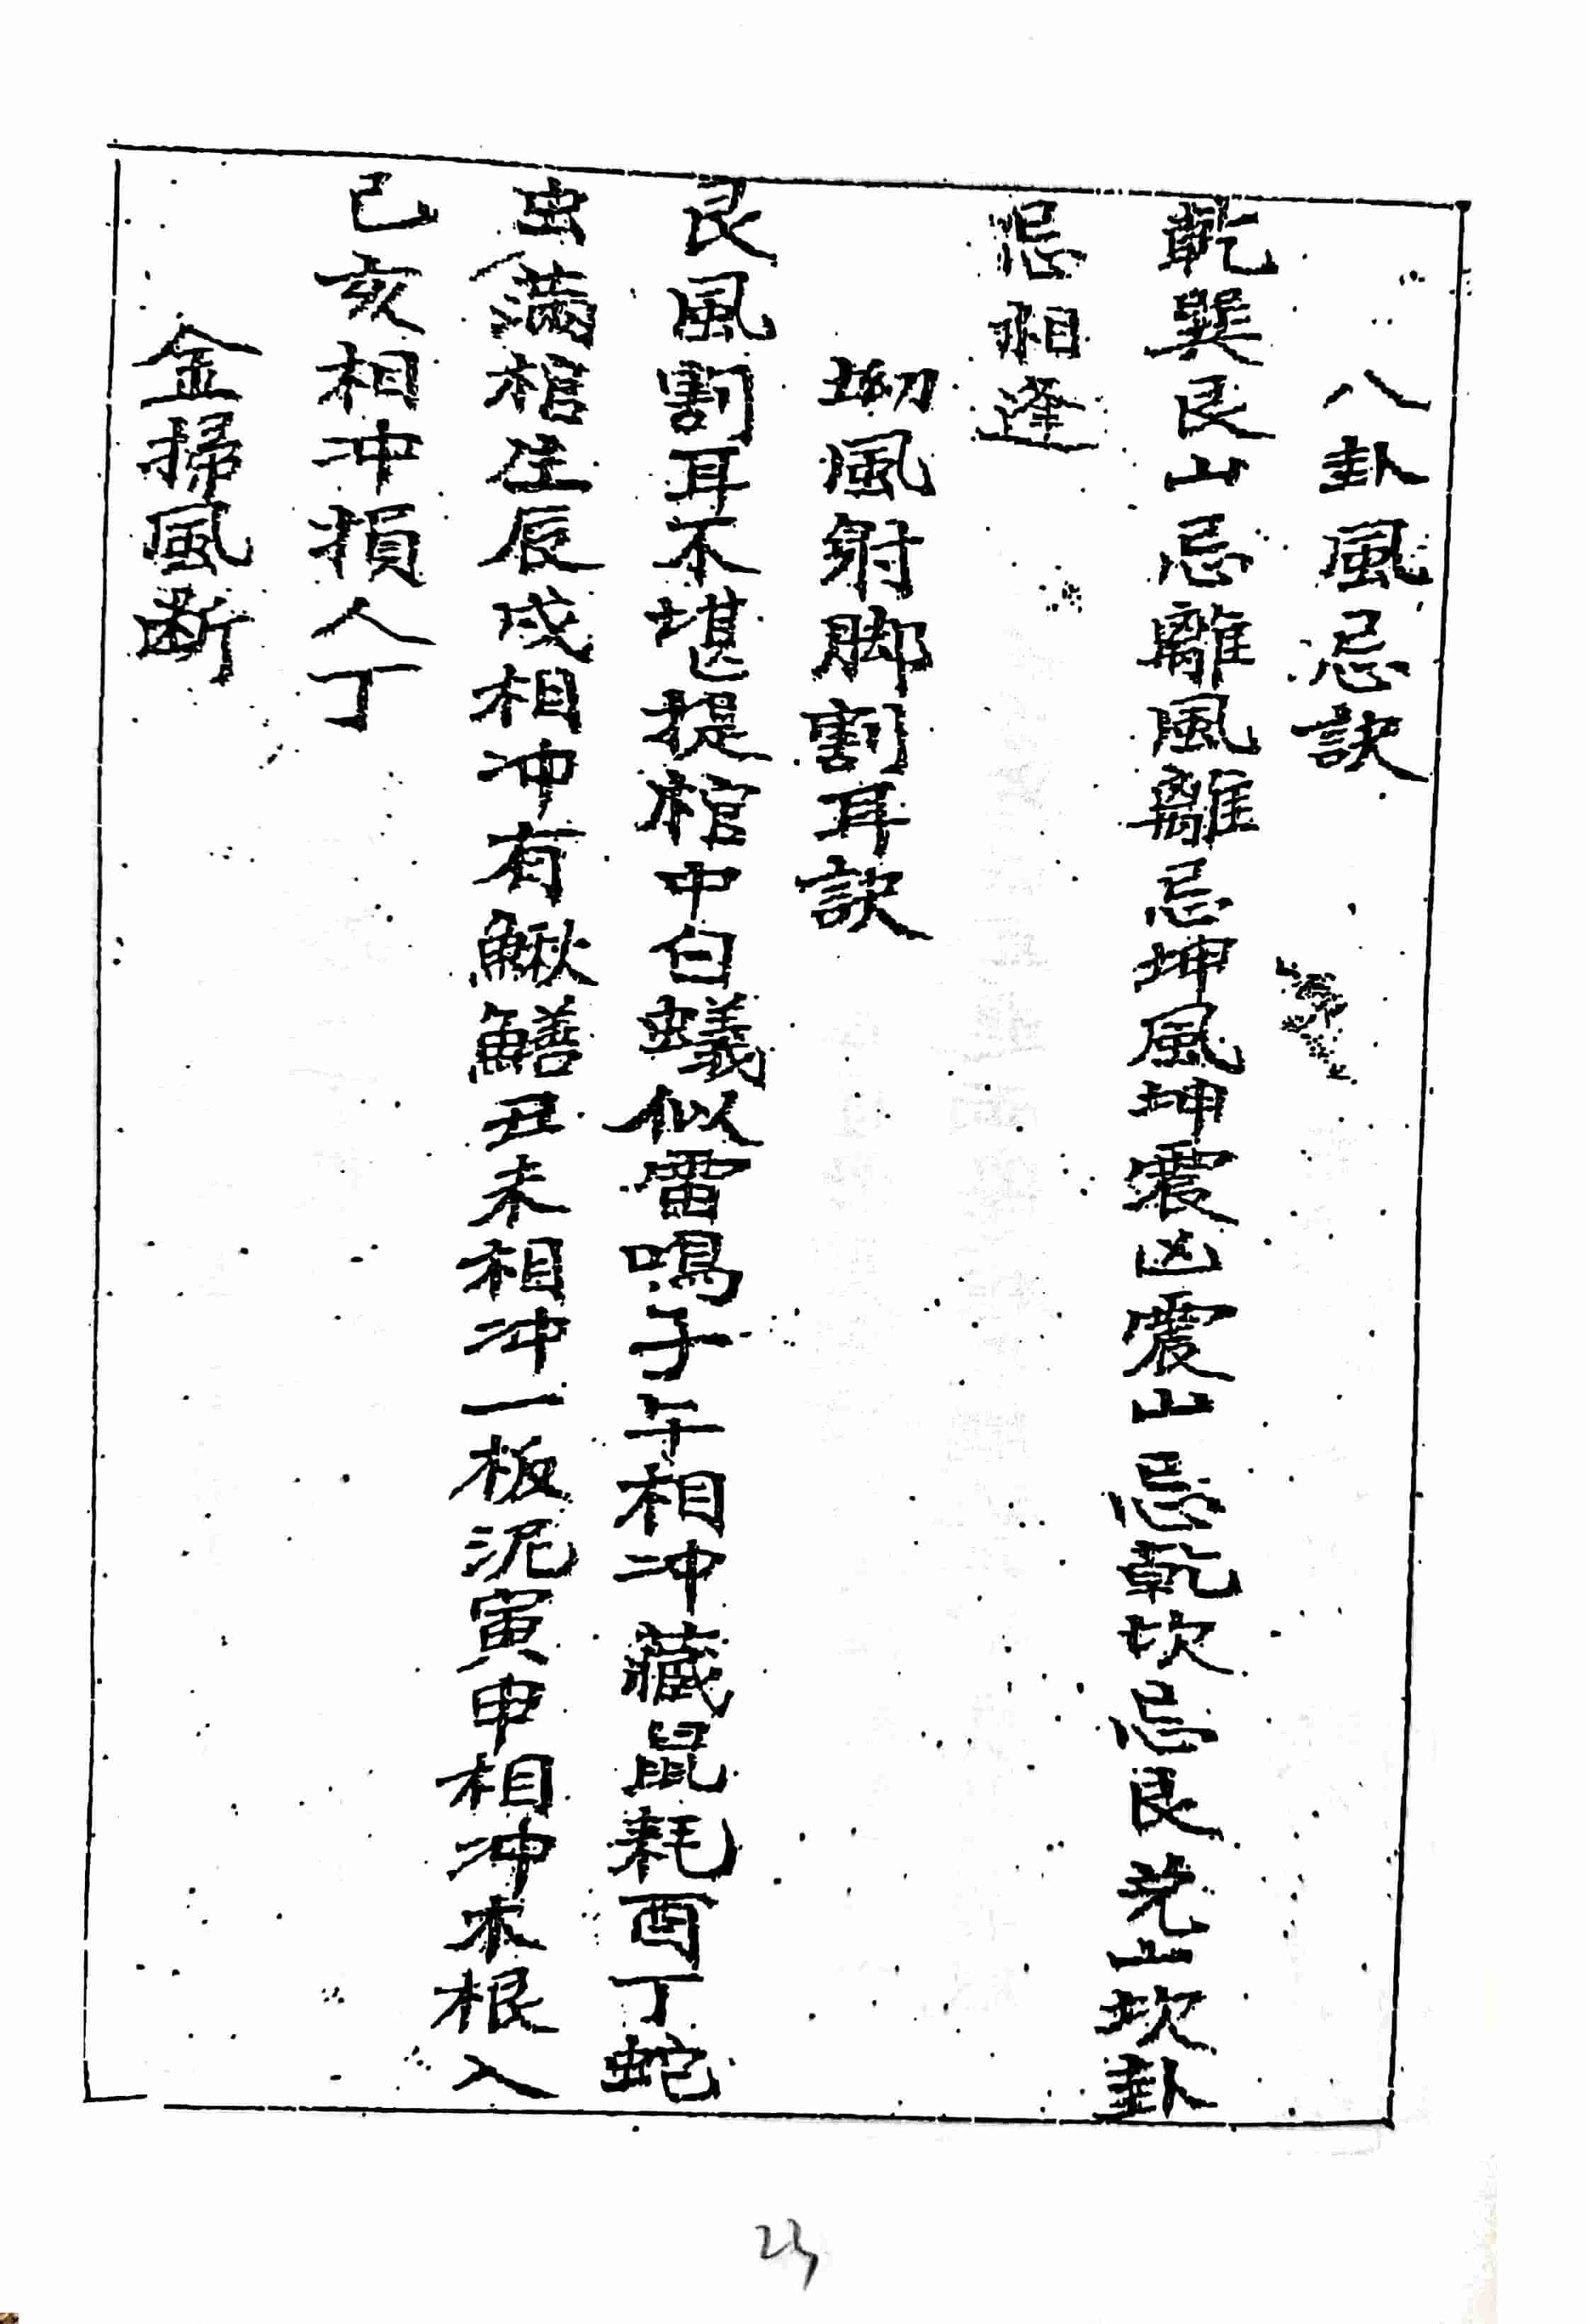 八卦風忌訣
乾巽艮山忌離風離忌坤風坤震凶震山忌乾坎忌艮兊山坎卦
忌相逢
坳風射脚割耳訣
艮風割耳不堪提棺中白蟻似雷鳴子午相冲藏鼠耗酉丁蛇
虫滿棺生辰戌相冲有鰍鱔丑未相冲一板泥寅申相冲木根入
己亥相冲損人丁
金掃風断
23